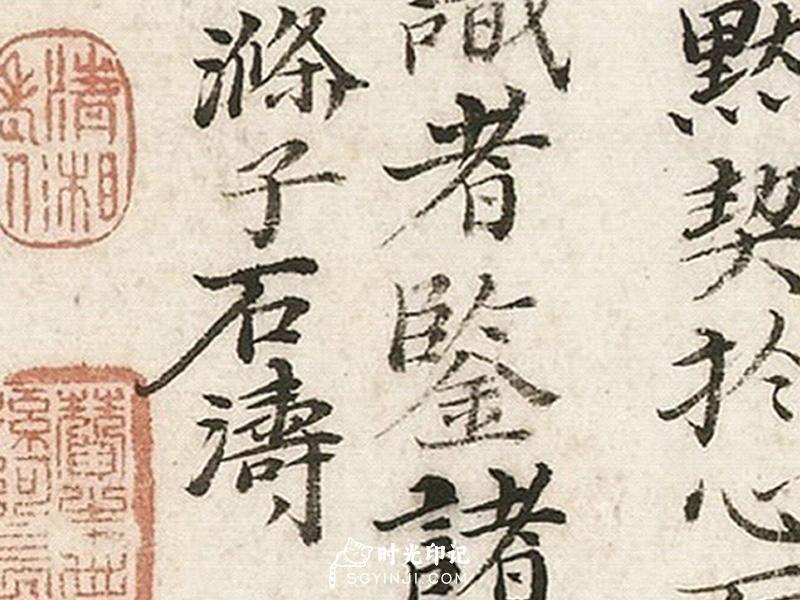 黙契於心
識者鍳諸
滌子石濤
清湘
时光印记
SGYINJI.COM